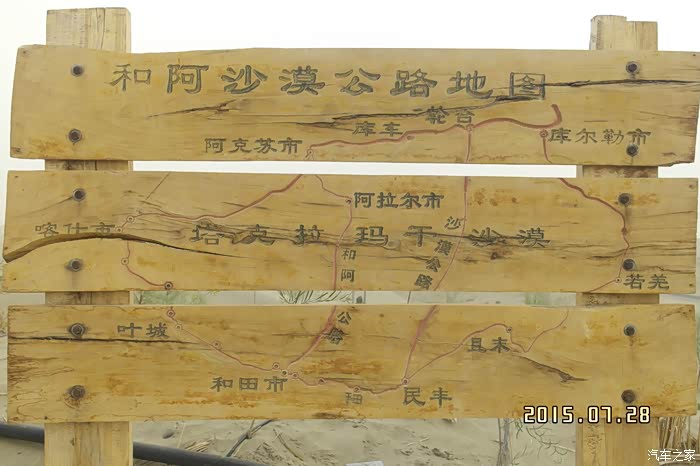 和阿沙漠公路地图
轮台
库车
阿克苏市
库尔勒市
阿拉尔市
喀什市
塔克拉玛干沙漠
沙漠公路
和阿
公路
若羌
叶城
且末
和田市
民丰
2015.07.28
汽车之家